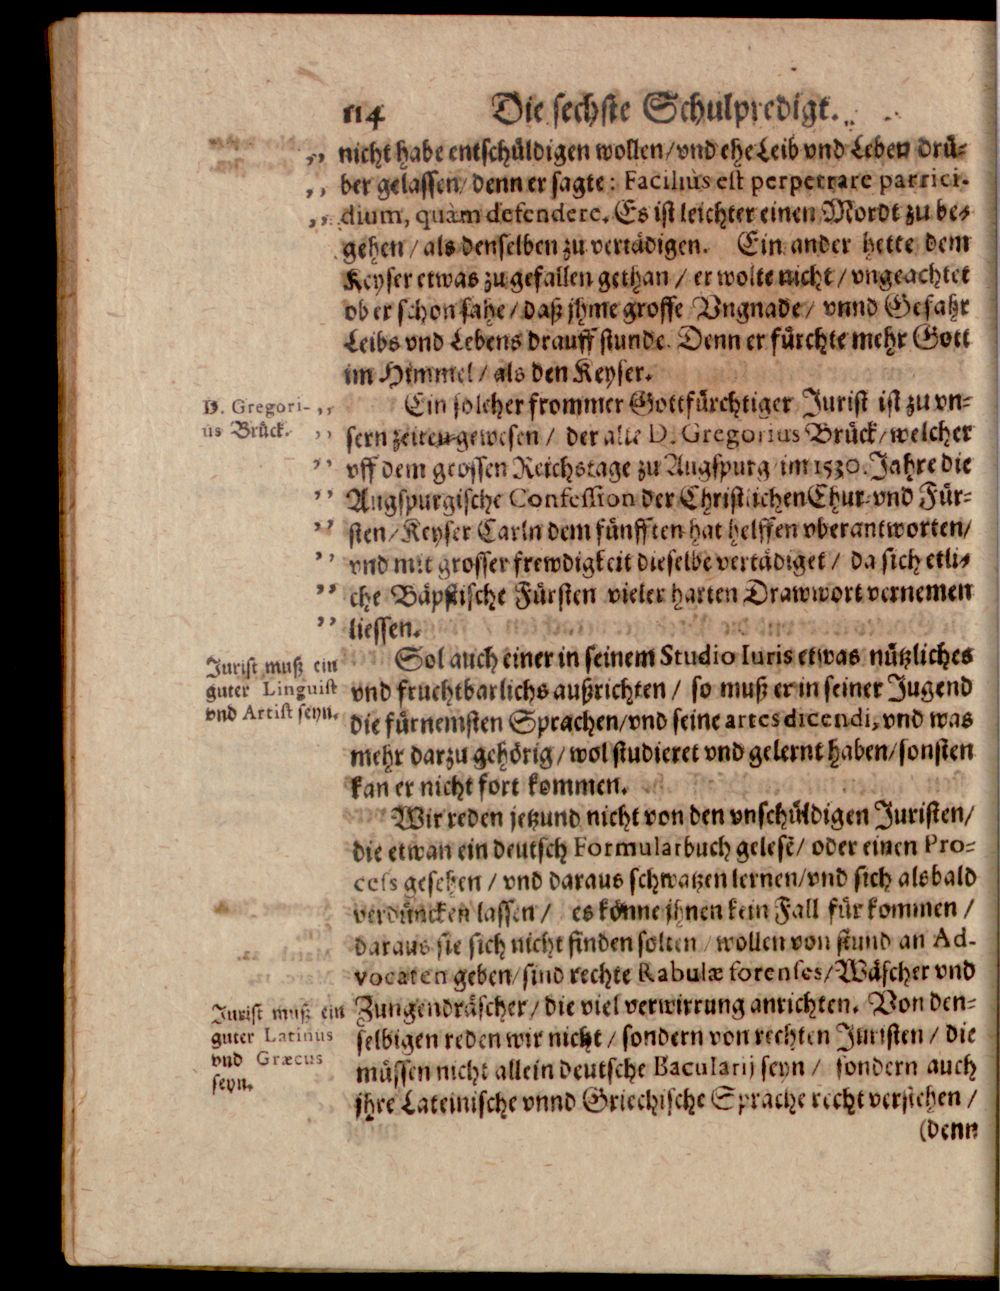 114 Die sechste Schulpredigt.
„ nicht habe entschüldigen wollen/vnd ehe Leib vnd Leben drü-
„ ber gelassen/denn er sagte: Facilius est perpetrare parrici-
„ dium, quàm defendere. Es ist leichter einen Mordt zu be-
gehen / als denselben zu vertädigen. Ein ander hette dem
Keyser etwas zu gefallen gethan / er wolte nicht / vngeachtet
ob er schon sahe / daß jhme grosse Vngnade / vnnd Gefahr
Leibs vnd Lebens drauff stunde. Denn er fürchte mehr Gott
im Himmel / als den Keyser.
D. Gregori-
us Brück.
„ Ein solcher frommer Gottfürchtiger Jurist ist zu vn-
„ sern zeiten gewesen / der alte D. Gregorius Brück/welcher
„ vff dem grossen Reichstage zu Augspurg im 1530. Jahre die
„ Augspurgische Confession der Christlichen Chur- vnd Für-
„ sten/Keyser Carln dem fünfften hat helffen vberantworten/
„ vnd mit grosser frewdigkeit dieselbe vertädiget / da sich etli-
„ che Bäpstische Fürsten vieler harten Drawwort vernemen
„ liessen.
Jurist muß ein
guter Linguist
vnd Artist seyn.
Sol auch einer in seinem Studio Iuris etwas nützliches
vnd fruchtbarlichs außrichten / so muß er in seiner Jugend
die fürnemsten Sprachen/vnd seine artes dicendi, vnd was
mehr darzu gehörig/wol studieret vnd gelernt haben/sonsten
kan er nicht fort kommen.
Wir reden jetzund nicht von den vnschüldigen Juristen/
die etwan ein deutsch Formularbuch gelesẽ/ oder einen Pro-
cess gesehen / vnd daraus schwatzen lernen/vnd sich alsbald
verdüncken lassen / es könne jhnen kein Fall für kommen /
daraus sie sich nicht finden solten / wollen von stund an Ad-
vocaten geben/sind rechte Rabulæ forenses/Wäscher vnd
Zungendräscher/die viel verwirrung anrichten. Von den-
selbigen reden wir nicht / sondern von rechten Juristen / die
müssen nicht allein deutsche Bacularij seyn / sondern auch
jhre Lateinische vnnd Griechische Sprache recht verstehen /
Jurist muß ein
guter Latinus
vnd Græcus
seyn.
(denn